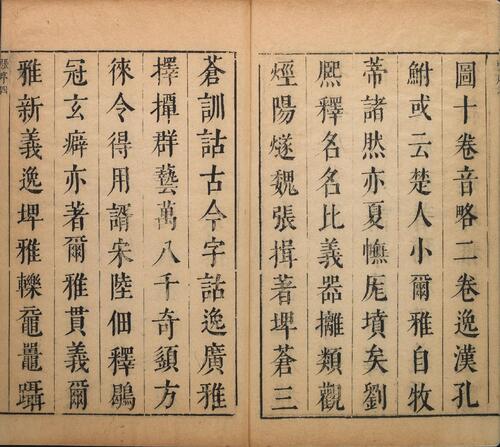 圖十卷音略二卷逸漢孔
鮒或云楚人小爾雅自牧
蒂諸然亦夏幠厖墳矣劉
熈釋名名比義器攡類觀
烴陽燧魏張揖著埤蒼三
蒼訓詁古今字詁逸廣雅
擇撣群藝萬八千奇頭方
徠令得用諝宋陸佃釋鶡
冠玄癖亦著爾雅貫義爾
雅新義逸埤雅轢黿鼉躡